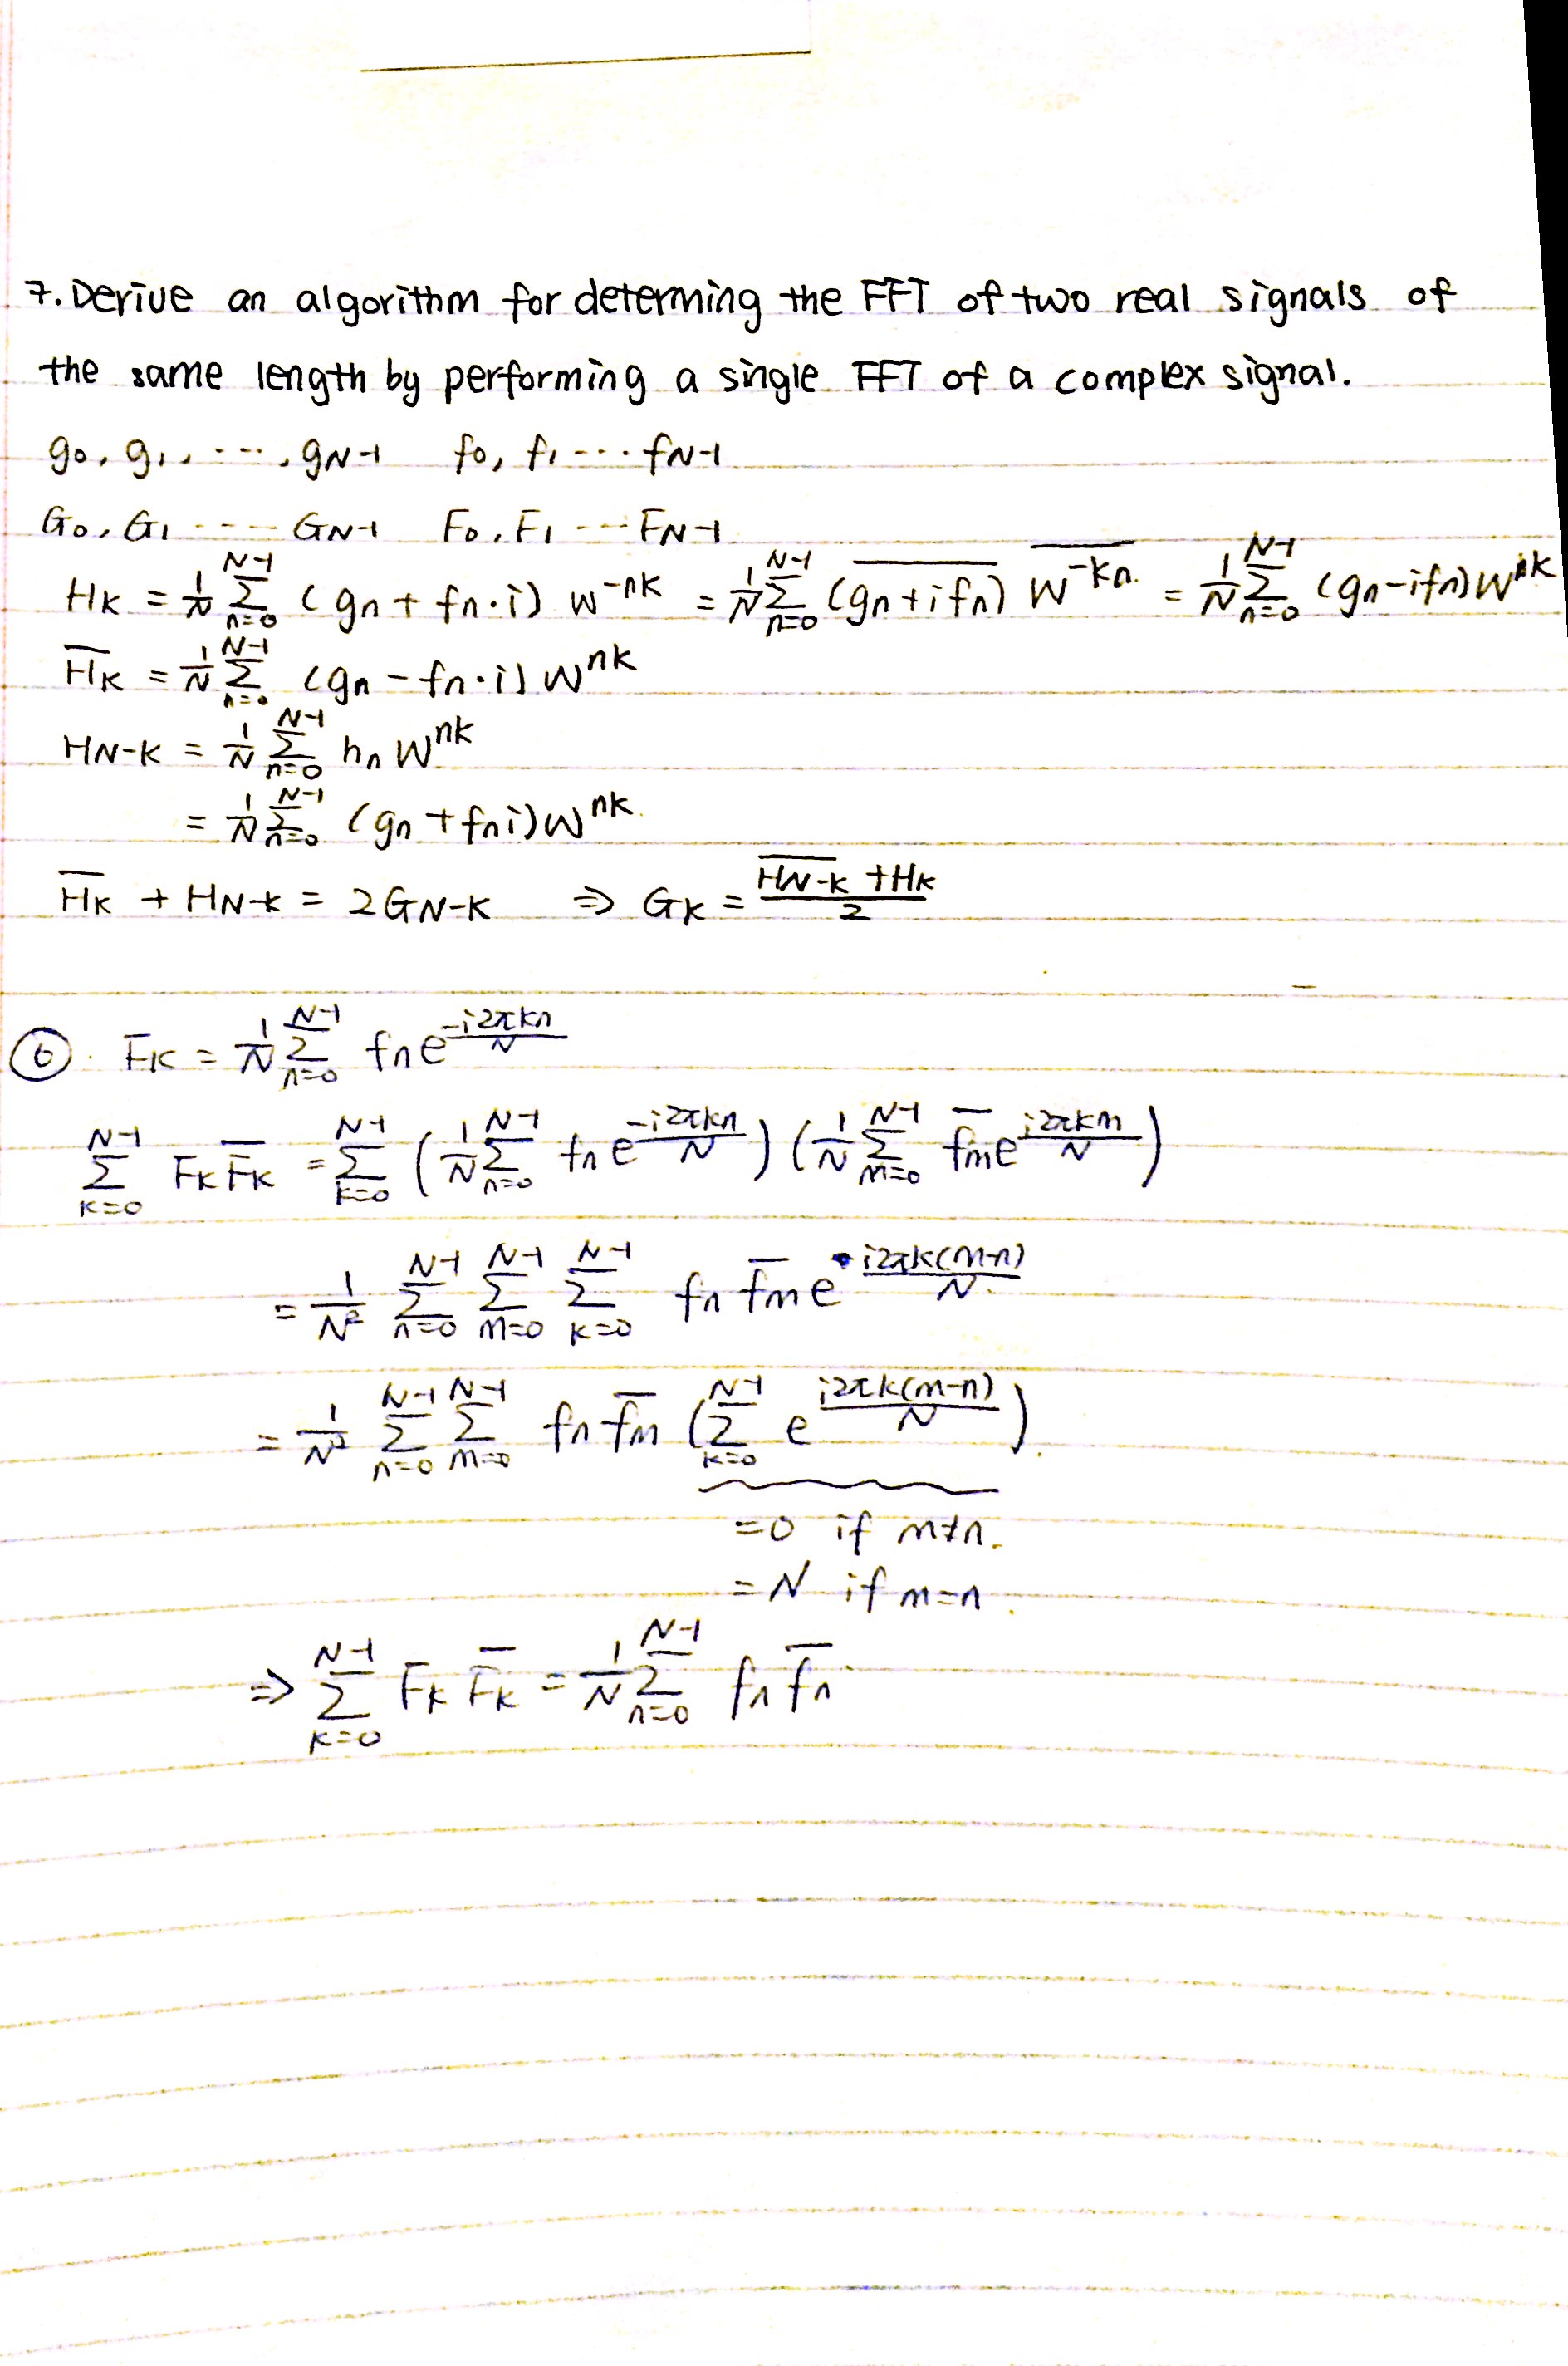 7. Derive an algorithm for determing the FFT of two real signals of
the same length by performing a single FFT of a complex signal.
g₀, g₁, ⋯, g_{N-1}   f₀, f₁ ⋯ f_{N-1}
G₀, G₁ ⋯ G_{N-1}   F₀, F₁ ⋯ F_{N-1}
H_k = \frac{1}{N} \sum_{n=0}^{N-1} (g_n + f_n·i) w^{-nk} = \frac{1}{N} \sum_{n=0}^{N-1} \overline{(g_n + i f_n)} \overline{W^{-kn}} = \frac{1}{N} \sum_{n=0}^{N-1} (g_n - i f_n) W^{nk}
\overline{H_k} = \frac{1}{N} \sum_{n=0}^{N-1} (g_n - f_n·i) W^{nk}
H_{N-k} = \frac{1}{N} \sum_{n=0}^{N-1} h_n W^{nk}
= \frac{1}{N} \sum_{n=0}^{N-1} (g_n + f_n i) W^{nk}
\overline{H_k} + H_{N-k} = 2G_{N-k} ⇒ G_k = \frac{\overline{H_{N-k}} + H_k}{2}
⑥. F_k = \frac{1}{N} \sum_{n=0}^{N-1} f_n e^{\frac{-i2πkn}{N}}
\sum_{k=0}^{N-1} F_k \overline{F_k} = \sum_{k=0}^{N-1} (\frac{1}{N} \sum_{n=0}^{N-1} f_n e^{\frac{-i2πkn}{N}}) (\frac{1}{N} \sum_{m=0}^{N-1} \overline{f_m} e^{\frac{i2πkm}{N}})
= \frac{1}{N^2} \sum_{n=0}^{N-1} \sum_{m=0}^{N-1} \sum_{k=0}^{N-1} f_n \overline{f_m} e^{\frac{i2πk(m-n)}{N}}
= \frac{1}{N^2} \sum_{n=0}^{N-1} \sum_{m=0}^{N-1} f_n \overline{f_m} (\sum_{k=0}^{N-1} e^{\frac{i2πk(m-n)}{N}}).
=0 if m≠n.
=N if m=n.
⇒ \sum_{k=0}^{N-1} F_k \overline{F_k} = \frac{1}{N} \sum_{n=0}^{N-1} f_n \overline{f_n}